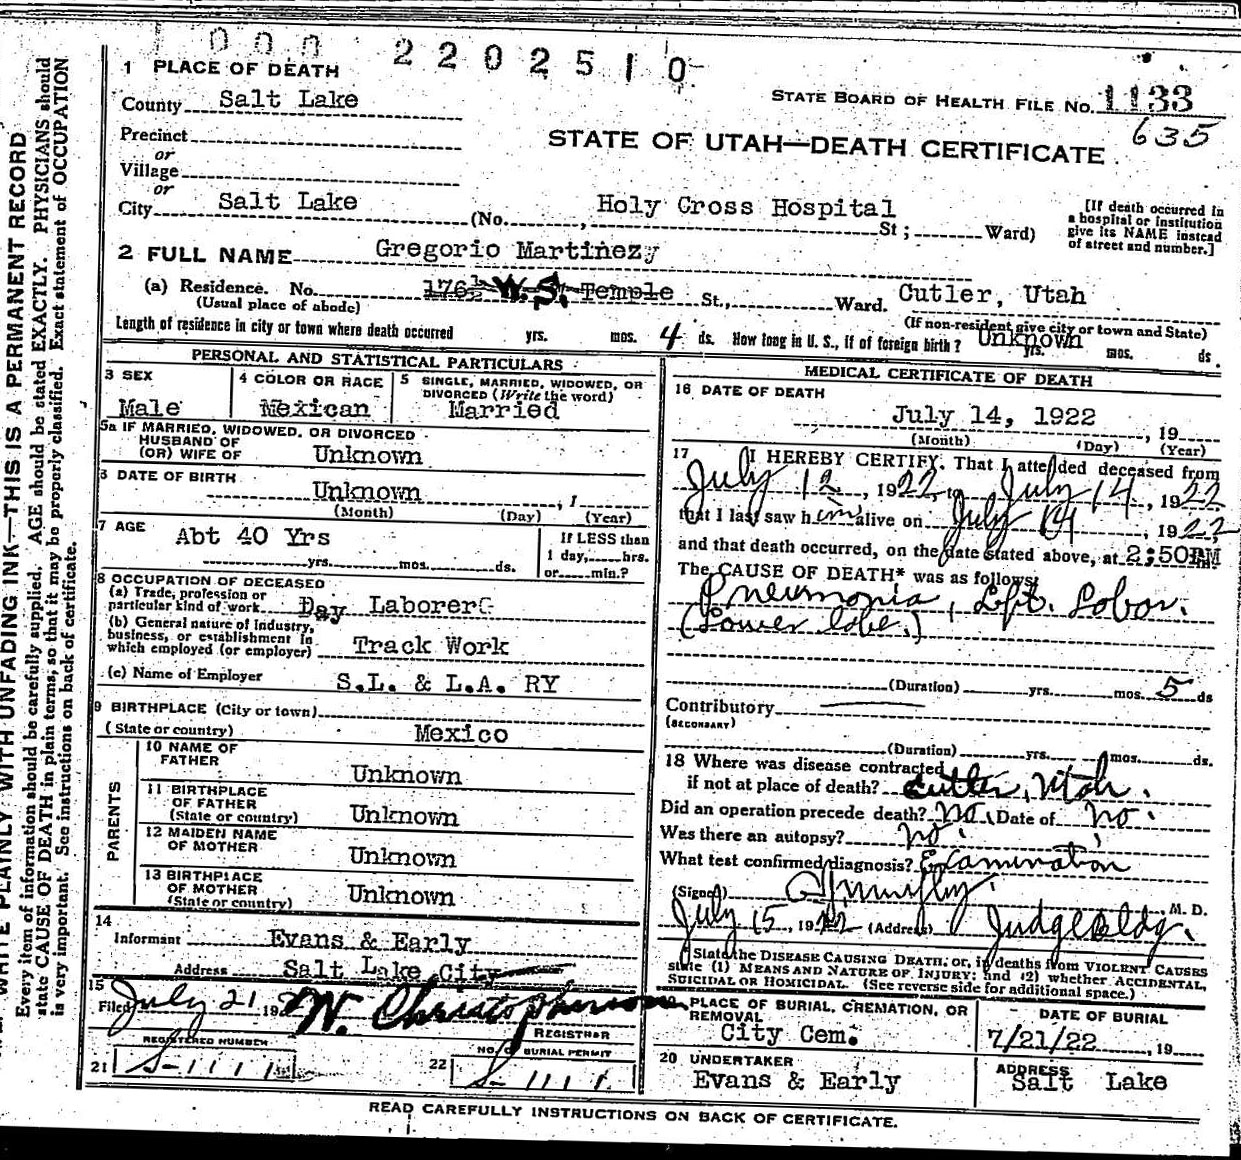 000 2202510
1 PLACE OF DEATH
County Salt Lake
STATE BOARD OF HEALTH FILE NO. 1133
635
Precinct
or
Village
or
City Salt Lake
STATE OF UTAH—DEATH CERTIFICATE
(No. , Holy Cross Hospital St ; Ward)
[If death occurred in
a hospital or institution
give its NAME instead
of street and number.]
2 FULL NAME Gregorio Martinez
(a) Residence. No. 176½ W. S. Temple St., Ward. Cutler, Utah
(Usual place of abode)
(If non-resident give city or town and State)
Length of residence in city or town where death occurred yrs. mos. 4 ds. How long in U. S., if of foreign birth? Unknown yrs. mos. ds
PERSONAL AND STATISTICAL PARTICULARS
3 SEX
Male
4 COLOR OR RACE
Mexican
5 SINGLE, MARRIED, WIDOWED, OR
DIVORCED (Write the word)
Married
5a IF MARRIED, WIDOWED, OR DIVORCED
HUSBAND OF
(OR) WIFE OF Unknown
6 DATE OF BIRTH
Unknown , 1
(Month) (Day) (Year)
7 AGE
Abt 40 Yrs
yrs. mos. ds.
If LESS than
1 day, hrs.
or min.?
8 OCCUPATION OF DECEASED
(a) Trade, profession or
particular kind of work Day Laborer
(b) General nature of Industry,
business, or establishment in
which employed (or employer) Track Work
(c) Name of Employer S.L. & L.A. RY
9 BIRTHPLACE (City or town)
(State or country) Mexico
PARENTS
10 NAME OF
FATHER Unknown
11 BIRTHPLACE
OF FATHER
(State or country) Unknown
12 MAIDEN NAME
OF MOTHER Unknown
13 BIRTHPLACE
OF MOTHER
(State or country) Unknown
14
Informant Evans & Early
Address Salt Lake City
15
Filed July 21 1922 W. Christopherson
REGISTRAR
REGISTERED NUMBER
21 S-1111
NO. OF BURIAL PERMIT
22 S-1111
MEDICAL CERTIFICATE OF DEATH
16 DATE OF DEATH
July 14, 1922 , 19
(Month) (Day) (Year)
17 I HEREBY CERTIFY. That I attended deceased from
July 12, 1922, to July 14, 1922
that I last saw him alive on July 14, 1922,
and that death occurred, on the date stated above, at 2:50PM
The CAUSE OF DEATH* was as follows:
Pneumonia, Left. Lobar.
(Lower lobe.)
(Duration) yrs. mos. 5 ds
Contributory
(SECONDARY)
(Duration) yrs. mos. ds.
18 Where was disease contracted
if not at place of death? Cutler, Utah.
Did an operation precede death? No. Date of no.
Was there an autopsy? no.
What test confirmed diagnosis? Examination
(Signed) M. D.
July 15, 1922 (Address) Judge bldg.
* State the DISEASE CAUSING DEATH, or, in deaths from VIOLENT CAUSES
state (1) MEANS AND NATURE OF INJURY; and (2) whether ACCIDENTAL,
SUICIDAL OR HOMICIDAL. (See reverse side for additional space.)
19 PLACE OF BURIAL, CREMATION, OR
REMOVAL
City Cem.
DATE OF BURIAL
7/21/22 , 19
20 UNDERTAKER
Evans & Early
ADDRESS
Salt Lake
READ CAREFULLY INSTRUCTIONS ON BACK OF CERTIFICATE.
WRITE PLAINLY WITH UNFADING INK—THIS IS A PERMANENT RECORD
Every item of information should be carefully supplied. AGE should be stated EXACTLY. PHYSICIANS should
state CAUSE OF DEATH in plain terms, so that it may be properly classified. Exact statement of OCCUPATION
is very important. See instructions on back of certificate.